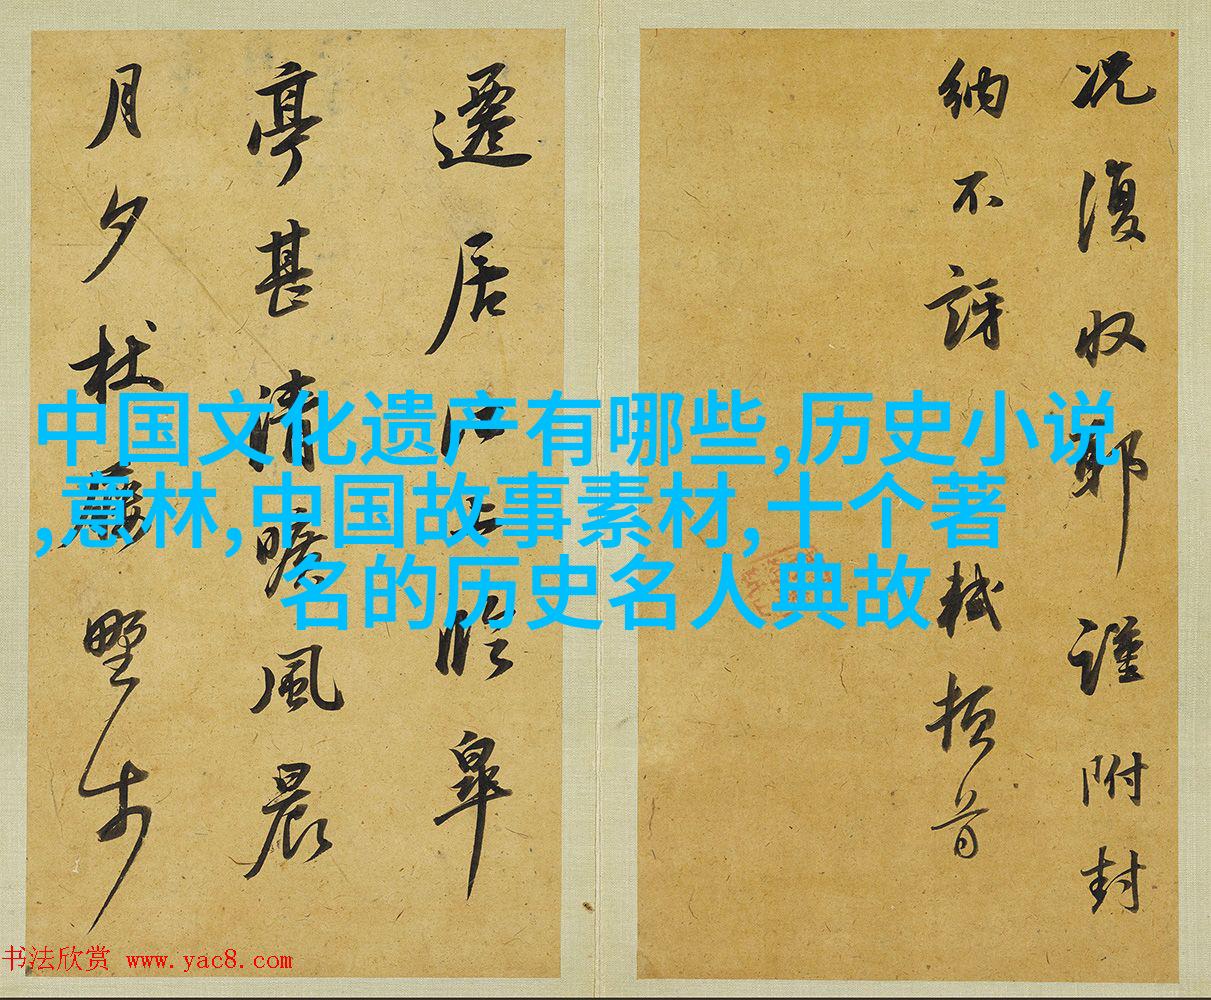 况復收耶謹附封
納不訝軾頓首
遷居江上臨皋
亭甚清曠風晨
月夕杖屨野步
中国文化遗产有哪些,历史小说
,意林,中国故事素材,十个著
名的历史名人典故
书法欣赏 www.yac8.com